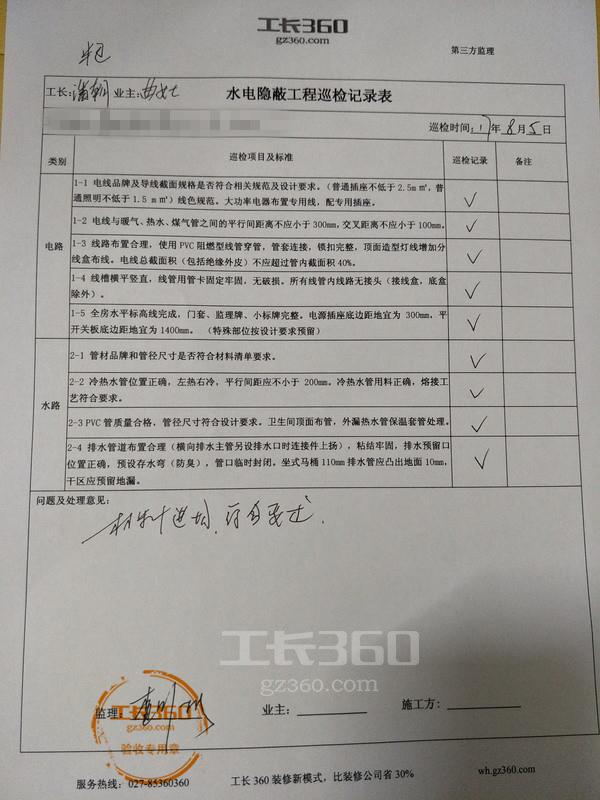 工长360
gz360.com
第三方监理
半包
工长: 业主:曲女士
水电隐蔽工程巡检记录表
巡检时间:17年8月5日
类别 巡检项目及标准 巡检记录 备注
电路
1-1 电线品牌及导线截面规格是否符合相关规范及设计要求。(普通插座不低于2.5m㎡,普
通照明不低于1.5 m㎡)线色规范。大功率电器布置专用线,配专用插座。
✓
1-2 电线与暖气、热水、煤气管之间的平行间距离不应小于300mm,交叉距离不应小于100mm。
✓
1-3 线路布置合理,使用PVC阻燃型线管穿管,管套连接,锁扣完整,顶面造型灯线增加分
线盒布线。电线总截面积(包括绝缘外皮)不应超过管内截面积40%。
✓
1-4 线槽横平竖直,线管用管卡固定牢固,无破损。所有线管内线路无接头(接线盒,底盒
除外)。
✓
1-5 全房水平标高线完成,门套、监理牌、小标牌完整。电源插座底边距地宜为300mm,平
开关板底边距地宜为1400mm。 (特殊部位按设计要求预留)
✓
水路
2-1 管材品牌和管径尺寸是否符合材料清单要求。
✓
2-2 冷热水管位置正确,左热右冷,平行间距应不小于 200mm。冷热水管用料正确,熔接工
艺符合要求。
✓
2-3 PVC管质量合格,管径尺寸符合设计要求。卫生间顶面布管,外漏热水管保温套管处理。
✓
2-4 排水管道布置合理(横向排水主管另设排水口时连接件上扬),粘结牢固,排水预留口
位置正确,预设存水弯(防臭),管口临时封闭。坐式马桶110mm排水管应凸出地面10mm,
干区应预留地漏。
✓
问题及处理意见:
材料进场,符合要求.
工长360
gz360.com
监理: 业主: 施工方:
工长360
gz360.com
验收专用章
服务热线:027-85360360 工长 360 装修新模式,比装修公司省 30% wh.gz360.com